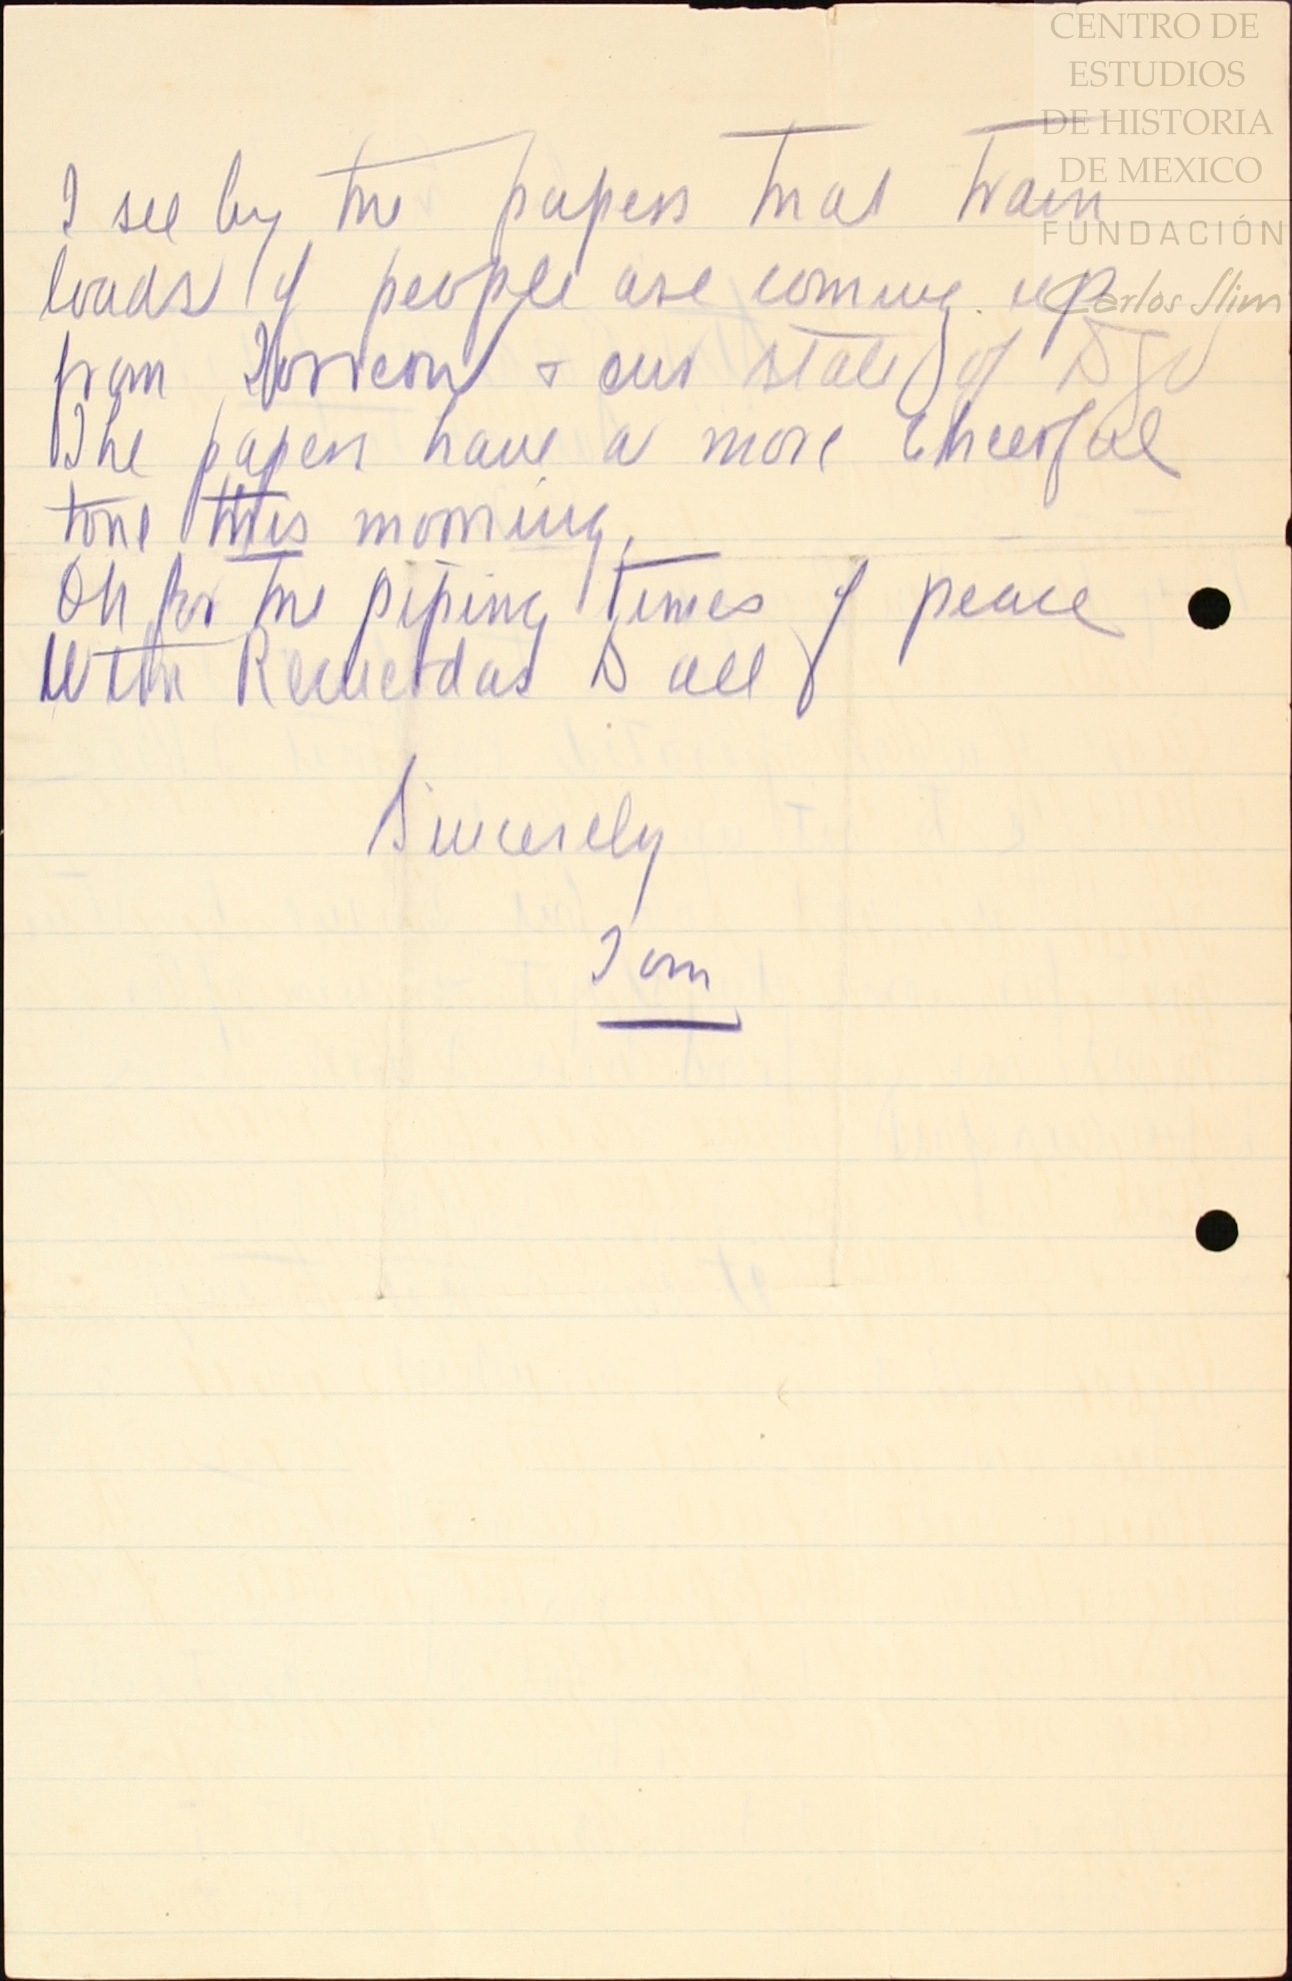 CENTRO DE
ESTUDIOS
DE HISTORIA
DE MEXICO
FUNDACIÓN
Carlos Slim
I see by the papers that train
loads of people are coming up
from Torreon & our state of Dgo
The papers have a more cheerful
tone this morning.
Oh for the piping times of peace
With Recuerdas to all
Sincerely
Tom